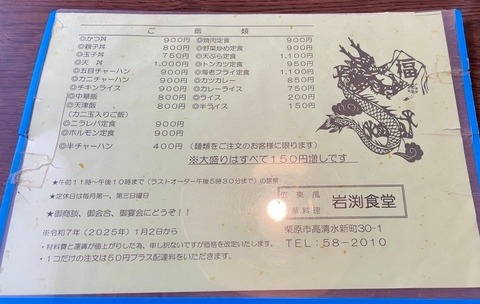 ご 飯 類
◎かつ丼 900円 ◎焼肉定食 900円
◎親子丼 800円 ◎野菜炒め定食 900円
◎玉子丼 750円 ◎天ぷら定食 1,100円
◎天 丼 1,000円 ◎トンカツ定食 950円
◎五目チャーハン 900円 ◎海老フライ定食 1,100円
◎カニチャーハン 900円 ◎カツカレー 950円
◎チキンライス 900円 ◎カレーライス 750円
◎中華飯 800円 ◎ライス 200円
◎天津飯 800円 ◎半ライス 150円
(カニ玉入りご飯)
◎ニラレバ定食 900円
◎ホルモン定食 900円
◎半チャーハン 400円 (麺類をご注文のお客様に限ります)
※大盛りはすべて150円増しです
福
★午前11時~午後10時まで(ラストオーダー午後5時30分まで)の営業
★定休日は毎月第一、第三日曜日
★御商談、御会合、御宴会にどうぞ!!
※令和7年(2025年)1月2日から
・材料費と運賃が値上がりした為、申し訳ないですが価格を改定いたします。
・1コだけの注文は50円プラス配達料をいただきます。
広東風
華料理
岩渕食堂
栗原市高清水新町30-1
TEL:58-2010